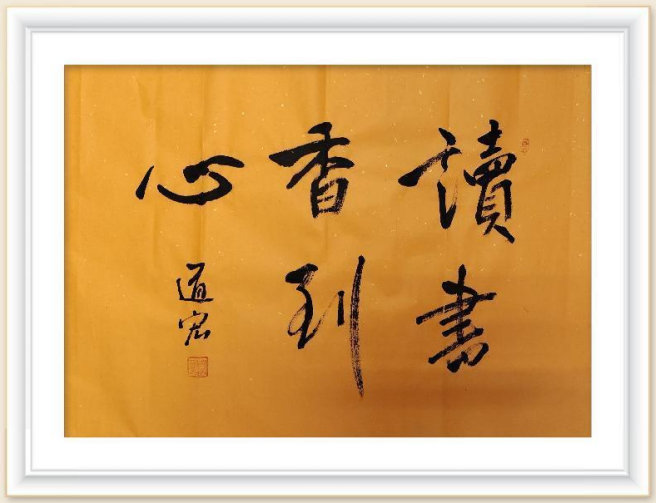 讀書
香到
心
道宏